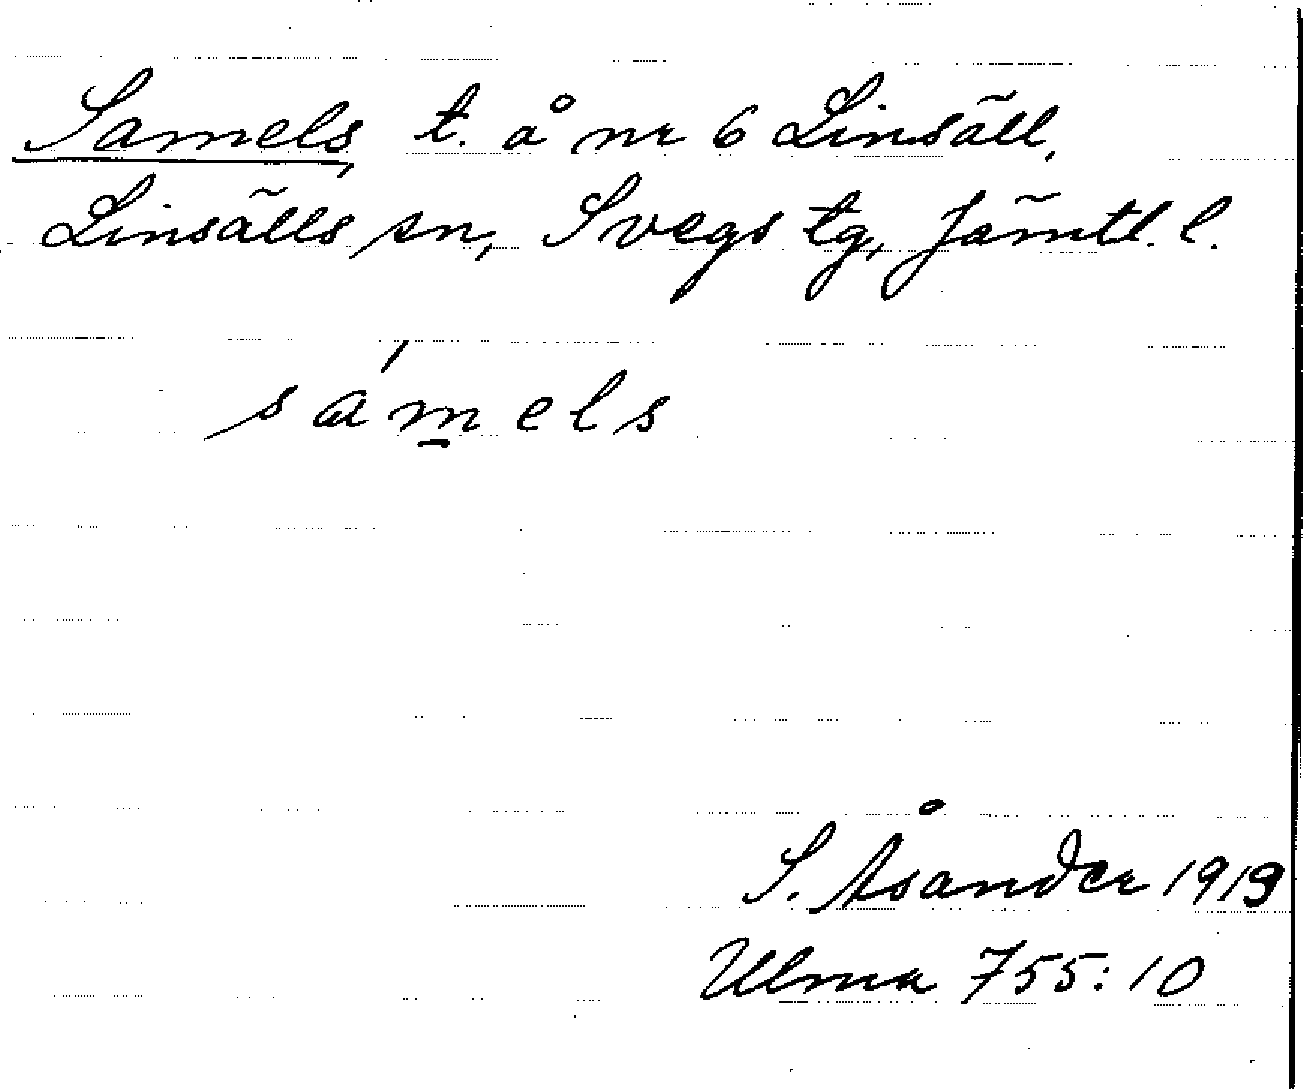 Samels, t. å nr 6 Linsäll,
Linsälls sn, Svegs tg, Jämtl. l.
sám̲els
S. Åsander 1919
Ulma 755:10